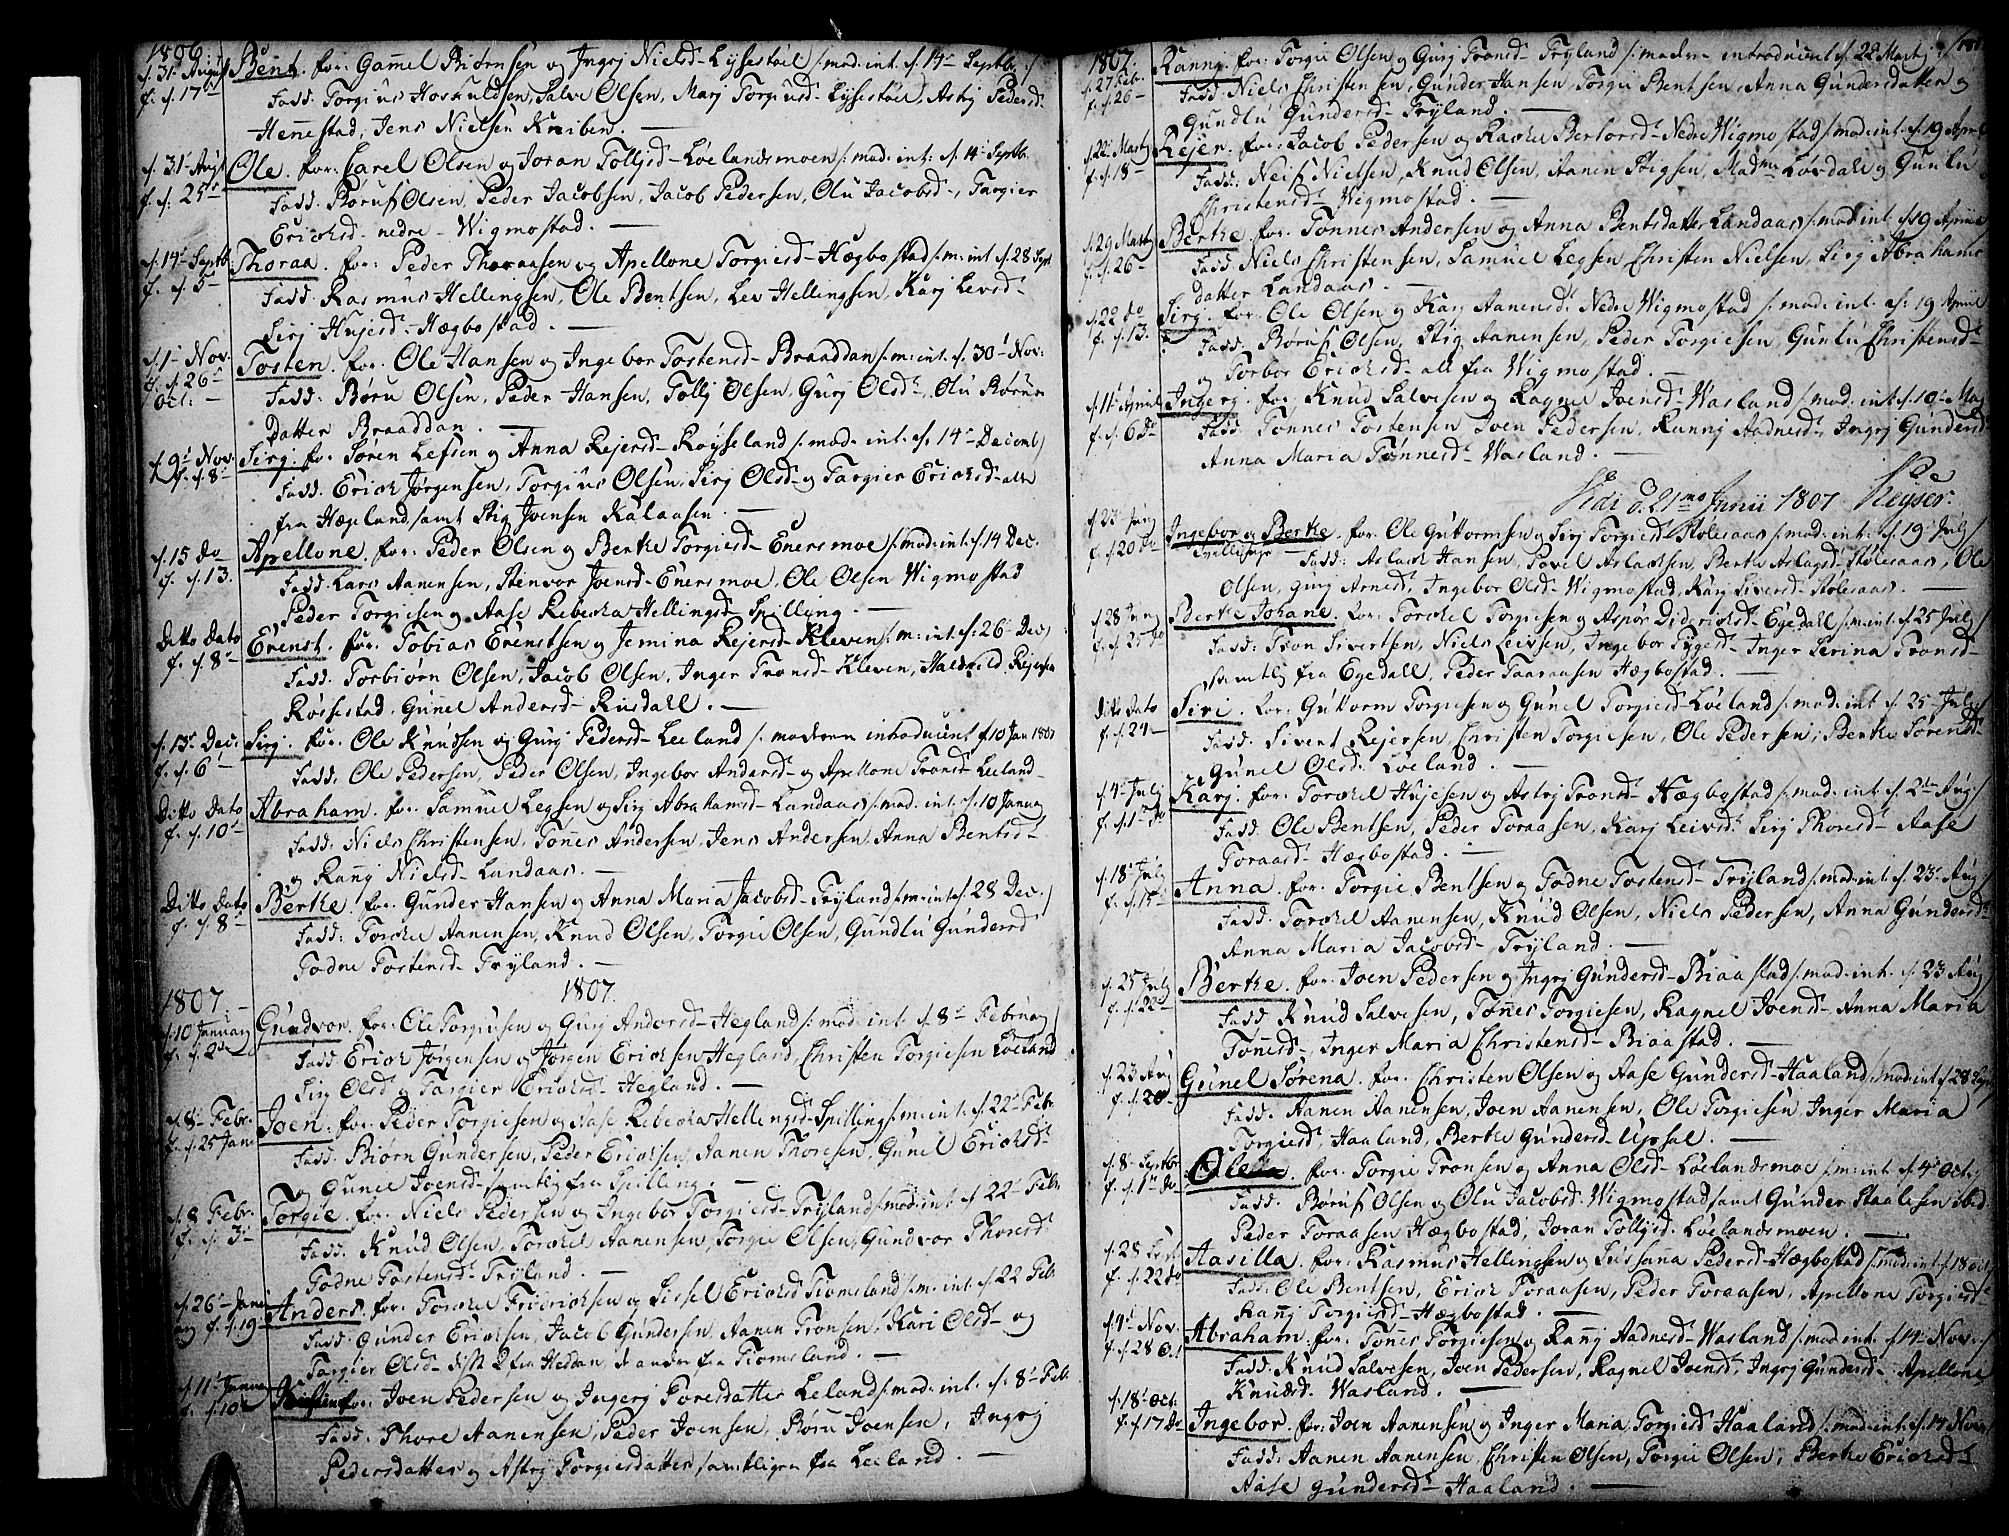 1806.
d. 31 August Bent. for: Gamel Biørnsen og Ingrj Nielsd- Lyssestøl /: mod: int. d. 14- Septbr :/
f. d. 17- Fadd: Torgius Hoskuldsen, Salve Olsen, Marj Torgiusd- Lyssestøl, Astrj Pedersd-
Hennestad, Jens Nielsen Kniben. —
d. 31- Aug Ole. for: Carel Olsen og Joran Tollysd- Løelandsmoen /: mod: int: d. 14- Septb.
f. d: 25- Fadd. Børuf Olsen, Peder Jacobsen, Jacob Pedersen, Olu Jacobsd-, Targier
Ericksd- nedre- Wigmostad. —
d. 14- Septb Thoraa. for: Peder Thoraasen og Apellone Torgiesd- Hægbostad /: m: int d. 28 Sept
f. d. 5- Fadd: Rasmus Hellingsen, Ole Bentsen, Lev Hellingsen, Karj Levsd-
Sirj Hujesd- Hægbostad. —
d. 1- Nov. Tosten. for: Ole Hansen og Ingebor Tostensd- Braaddan /: m: int. d. 30- Nov:
f. d. 26- Oct: — Fadd: Børu Olsen, Peder Hansen, Tollj Olsen, Gurj Olsd-, Olu Børus
Datter Braaddan. —
d. 9- Nov. Sirj. for Søren Lefsen og Anna Rejersd- Røyseland /: mod: int. d. 14- Decemb/
f. d. 8- Fadd. Erick Jørgensen, Torgius Olsen, Sirj Olsd- og Targier Ericksd- alle
fra Hægeland, samt Stig Joensen Kalaasen. —
d. 15 Do Apellone. for: Peder Olsen og Berthe Torgiesd- Enersmoe /: mod: int. d. 14 Dec.
f. d. 13. Fadd: Lars Aanensen, Stenvor Joensd- Enersmoe, Ole Olsen Wigmostad
Peder Torgiesen og Aase Rebecka Hellingsd- Spilling. —
Ditto Dato Erenst. for. Tobias Erenstsen og Jemina Rejersd- Kleven /: m: int. d. 26- Dec/
f. d. 8- Fadd: Torbiørn Olsen, Jacob Olsen, Inger Tronsd- Kleven, Rejersen
Røssestad, Gunnel Andersd- Risdahl. —
d. 15- Dec: Sirj. for. Ole Knudsen og Gurj Pedersd- Leeland /: moderen introducert d. 10 Jan 1807
f. d. 6- Fadd: Ole Pedersen, Peder Olsen, Ingebor Andersd- og Apellone Tronsd- Leeland.
Ditto Dato Abraham. for. Samuel Legsen og Sirj Abrahamsd- Landaas /: mod: int. d. 10 Januarj
f. d. 10- Fadd: Niels Christensen, Tønnes Andersen, Jens Andersen, Anna Bentsd-
og Rannj Nielsd- Landaas. —
Ditto Dato Berthe. for. Gunder Hansen og Anna Maria Jacobsd- Tryland /: m: int d. 28 Dec./
f. d. 8- Fadd: Torckel Aanensen, Knud Olsen, Torgie Olsen, Gundlu Gundersd
Todne Tostensd- Tryland. —
1807 1807.
d. 10 Januarj Gundvor. for: Ole Torgiusen og Gurj Andersd- Hegland /: mod: int. d. 8- Februarj/
f. d. 2de Fadd Erick Jørgensen og Jørgen Ericksen Hegland, Christen Torgiesen Løeland
Sirj Olsd og Targier Ericksd- Hegland. —
d. 8- Febr. Joen. for Peder Torgiesen og Aase Rebecka Hellingsd- Spilling /: m: int. d. 22- Febr.
f. d. 25 Jan. Fadd: Biørn Gundersen, Peder Ericksen, Aanen Thoresen, Gunnel Ericksd-
og Gunnel Joensd- samtlig fra Spilling. —
d. 8 Febr. Torgie. for. Niels Pedersen og Ingebor Torgiesd- Tryland /: mod: int. d. 22- Febr.
f. d. 3- Fadd. Knud Olsen, Torckel Aanensen, Torgie Olsen, Gundvor Thoresd
Todne Tostensd- Tryland. —
d. 26- Janu Anders. for. Torckel Fridricksen og Sissel Ericksd Tiomsland /: m: int. d. 22 Feb.
arj f. d. 19- Fadd: Gunder Ericksen, Jacob Gundersen, Aanen Tronsen, Kari Olsd- og
Targier Olsd- disse 2 fra Heddan, de andre fra Tiomsland. —
d. 11- Januar for. Joen Pedersen og Ingerj Toresdatter Leland /: mod: int. d. 8- Feb.
f. d. 10 Fadd. Thore Aanensen, Peder Joensen, Børu Joensen, Ingrj
Pedersdatter og Astrj Torgiesdatter, samtligen fra Leeland. —
1807. Rannj. for: Torgie Olsen og Gurj Tronsd- Tryland /: modern introducert d. 22 Martj. :/
d. 27 Feb. Fadd: Niels Christensen, Gunder Hansen, Torgie Bentsen, Anna Gundersdatter og
f. d. 26- Gundlu Gundersd- Tryland. —
d. 22 Martj Rejer. for. Jacob Pedersen og Raske Berhorsd- Nedre Wigmostad /: mod: int. d. 19 April
f. d. 18- Fadd: Neis Nielsen, Knud Olsen, Aanen Stigsen, Madme Løvdahl og Gunlu
Christensd- Wigmostad. —
d. 29 Martj Berthe. for. Tønnes Andersen og Anna Bentsdatter Landaas /: mod int. d. 19 Aprilii
f. d. 26- Fadd. Niels Christensen, Samuel Legsen, Christen Nielsen, Sirj Abrahams
datter Landaas. —
d. 22 do Sirj. for. Ole Olsen og Karj Aanensd. Nedre Wigmostad /: mod: int. d: 19 Aprilii
f. d. 13. Fadd: Børuf Olsen, Stig Aanensen, Peder Torgiesen, Gunlu Christensd-
og Torbor Ericksd- all fra Wigmostad. —
d. 11- April Ingerj. for. Knud Salvesen og Ragnel Joensd- Wasland /: mod: int d. 10- Maj
f. d. 6 Do Fadd. Tønnes Tostensen, Joen Pedersen, Rannj Aadnesd-, Ingrj Gundersd-
Anna Maria Tønnesd- Wasland. —
Vidi d. 21mo Junii 1807 Keyser.
d. 23- Junj Ingebor og Berthe. for. Ole Guttormsen og Sirj Torgiesd Stolesaas /: mod: int: d. 19- Julj/
f. d. 20 Do Tvillinge — Fadd: Aslack Hansen, Povel Aslacksen, Berthe Aslagsd- Stolesaas, Ole
Olsen, Gurj Arnesd-, Ingebor Olsd- Wigmostad, Karj Siversd- Stolesaas. —
d. 28 Junj Berthe Johane. for. Torckel Torgiesen og Aspør Didericksd- Egedall /: m: int. d. 25 Julj/
f. d. 25 Do Fadd: Tron Sivertsen, Niels Leivsen, Ingebor Tygesd- Inger Serina Tronsd-
samtlig fra Egedall, Peder Taaraasen Hægbostad. —
Ditto Dato Siri. for: Guttorm Torgiesen og Gunnel Torgiesd- Løeland /: mod: int d. 25- Julj/
f. d. 24- Fadd: Sivert Rejersen, Christen Torgiesen, Ole Pedersen, Berthe Sørensd-
Gunnel Olsd- Løeland. —
d. 4- Julj Karj. for: Torckel Hujesen og Astrj Tronsd- Hægbostad /: mod: int. d. 2- Aug/
f. d. 1ste do Fadd. Ole Bentsen, Peder Toraasen, Karj Leivsd-, Sirj Thoresd- Aase
Toraasd- Hægbostad. —
d. 18- Julj Anna. for. Torgie Bentsen og Todne Tostensd- Tryland /: mod: int d. 23- Aug/
f. d. 15- Fadd: Torckel Aanensen, Knud Olsen, Niels Pedersen, Anna Gundersd-
Anna Maria Jacobsd- Tryland. —
d. 25 Julj Berthe. for. Joen Pedersen og Ingrj Gundersd- Biaastad /: mod: int. d. 23 Aug/
f. d. 22- Fadd: Knud Salvesen, Tønnes Torgiesen, Ragnel Joensd- Anna Maria
Tønnesd-, Inger Maria Christensd- Biaastad. —
d. 23 Aug Gunnel Sørena. for. Christen Olsen og Aase Gundersd- Haaland /: mod: int d. 28 Sept
f. d. 20- Fadd: Aanen Aanensen, Joen Aanensen, Ole Torgiesen, Inger Maria
Torgiesd, Haaland, Berthe Gundersd- Upsal. —
d. 8- Septbr for. Torgie Tronsen og Anna Olsd- Løelandsmoe /: m: int. d. 4- Oct:
f. d. 1ste do Fadd: Børuf Olsen og Olu Jacobsd- Wigmostad samt Gunder Staalesen ibid.
Peder Toraasen Hægbostad, Joran Tollysd. Løelandsmoen. —
d. 28 Sept Aasilla. for. Rasmus Hellingsen og Sussana Pedersd- Hægbostad /: mod: int d. 18 Oct
f. d. 22 do Fadd: Ole Bentsen, Erick Toraasen, Peder Toraasen, Apellone Torgiesd-
Rannj Torgiesd- Hægbostad. —
d. 4- Nov. Abraham. for: Tønnes Torgiesen og Rannj Aadnesd- Wasland /: mod: int. d. 14- Nov. :/
f. d. 28 Oct Fadd: Knud Salvesen, Joen Pedersen, Ragnel Joensd-, Ingrj Gundersd- Apellone
Knudsd. Wasland. —
d. 18- Oct. Ingebor. for: Joen Aanensen og Inger Maria Torgiesd Haaland /: mod: int. d. 14 Nov/
f. d. 17 do Fadd: Aanen Aanensen, Christen Olsen, Torgie Olsen, Berthe Ericksd-
Aase Gundersd- Haaland. —